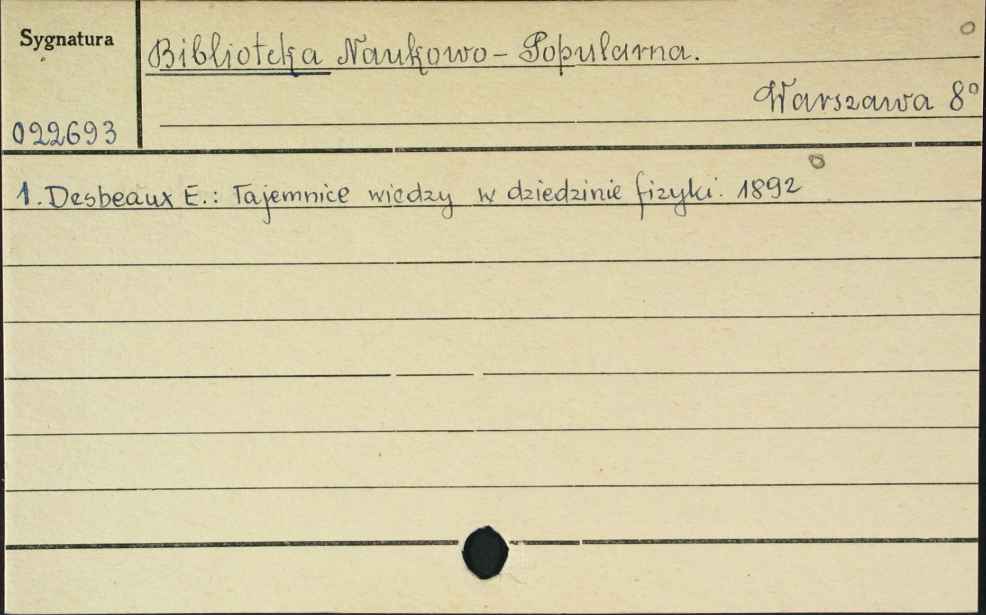 Sygnatura
Biblioteka Naukowo-Popularna.
Warszawa 8°
022693
1. Desbeaux E.: Tajemnice wiedzy w dziedzinie fizyki. 1892